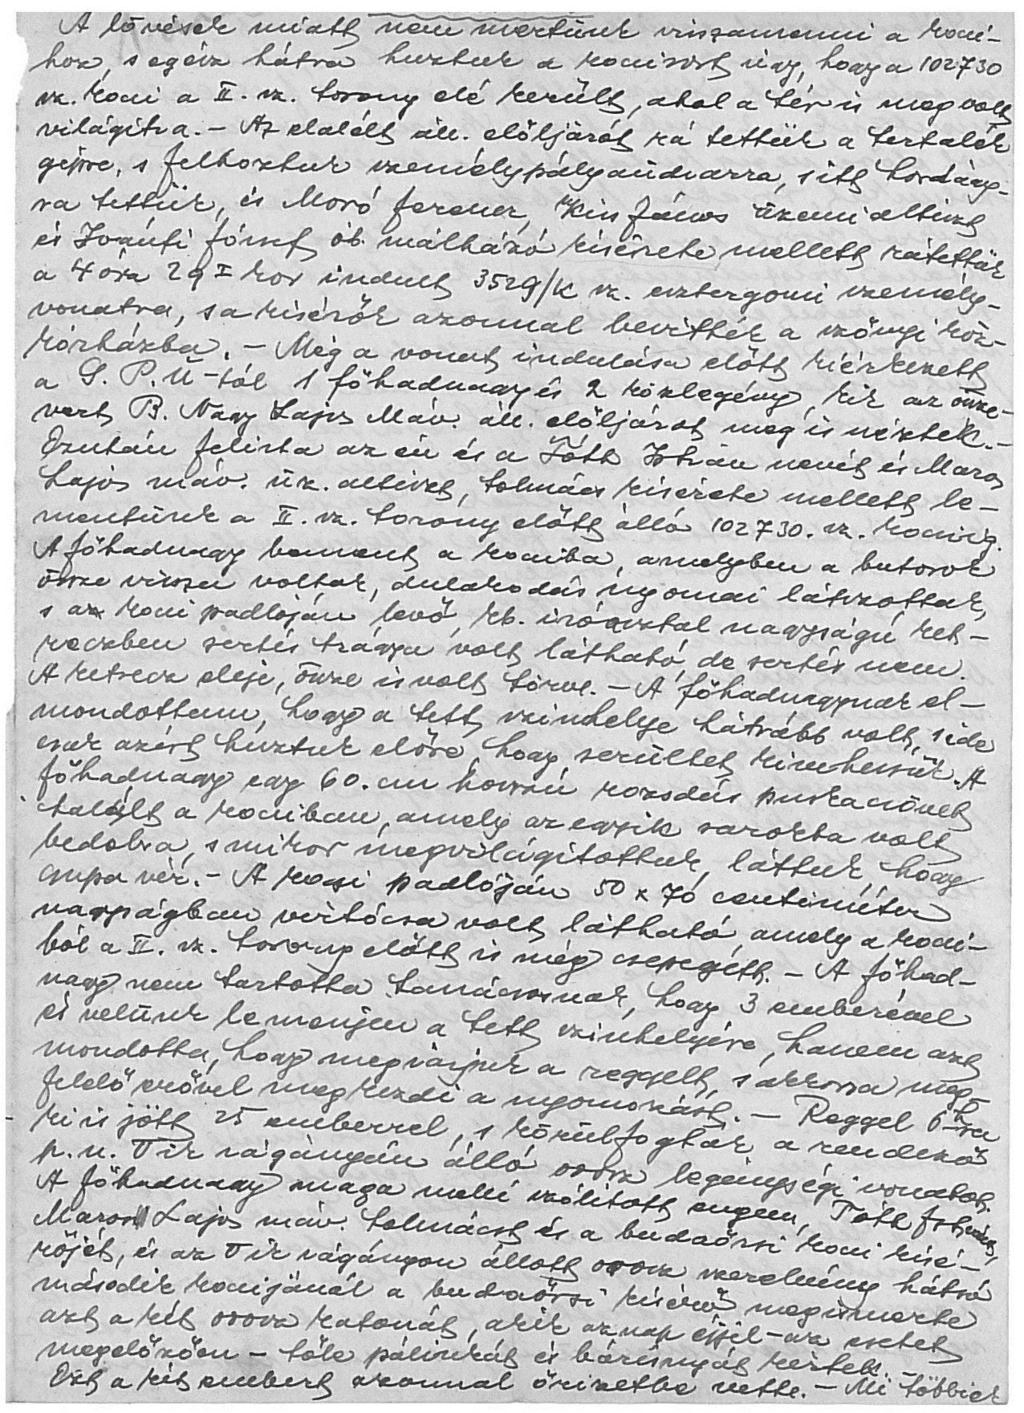 A lövések miatt nem mertünk visszamenni a koci-
hoz, s egész hátra huztuk a kocisort úgy, hogy a 102730
sz. koci a II. sz. torony elé került, ahol a tér is meg volt
világitva. - Az elalélt áll. előljárót rá tettük a tartalék
gépre, s felhoztuk személypályaudvarra, s itt hordágy-
ra tettük, és Moró Ferenc, Kiss János üzemi altiszt
és Ivánfi József ób. málházó kisérete mellett rátettük
a 4 óra 29 I kor indult 3529/K sz. esztergomi személy-
vonatra, s a kisérők azonnal bevitték a szőnyi köz-
kórházba. - Még a vonat indulása előtt kiérkezett
a G. P. U-tól 1 főhadnagy és 2 közlegény, kik az össze-
vert B. Nagy Lajos Máv. áll. előljárót meg is nézték. -
Ezután felirta az én és a Tóth István nevét és Maros
Lajos máv. üz. altiszt, tolmács kisérete mellett le-
mentünk a II. sz. torony előtt álló 102730. sz. kociig.
A főhadnagy bement a kociba, amelyben a butorok
össze vissza voltak, dulakodás nyomai látszottak,
s az koci padlóján levő, kb. iróasztal nagyságú ket-
reczben sertés trágya volt látható, de sertés nem.
A ketrecz eleje, össze is volt törve. - A főhadnagynak el-
mondottam, hogy a tett szinhelye hátrább volt, s ide
csak azért húztuk előre, hogy serültet kivehessük. A
főhadnagy egy 60. cm hosszú rozsdás puskacsövet
talált a kociban, amely az egyik sarokba volt
bedobva, s mikor megvilágitottuk, láttuk hogy
csupa vér. - A koci padlóján 50 x 70 centiméter
nagyságban vértócsa volt látható, amely a koci-
ból a II. sz. torony előtt is még csepegett. - A főhad-
nagy nem tartotta tanácsosnak, hogy 3 emberével
és velünk lemenjen a tett szinhelyére, hanem azt
mondotta, hogy megvárjuk a reggelt, s akkorra meg-
felelő erővel megkezdi a nyomozást. - Reggel 6 h-ra
ki is jött 25 emberrel, s körülfogták a rendező
p.u. vágányán álló orosz legénységi vonatot.
A főhadnagy maga mellé szólitott engem, Tóth Istvánt,
Maros Lajos máv. tolmácst és a budaörsi koci kisé-
rőjét, és az vágányon állott orosz szerelvény hátsó
második kocijánál a budaörsi kisérő megismerte
azt a két orosz katonát, akik aznap éjjel - az esetet
megelőzően - tőle pálinkát és báránykát kértek. -
Ezt a két embert azonnal őrizetbe vette. - Mi többiek